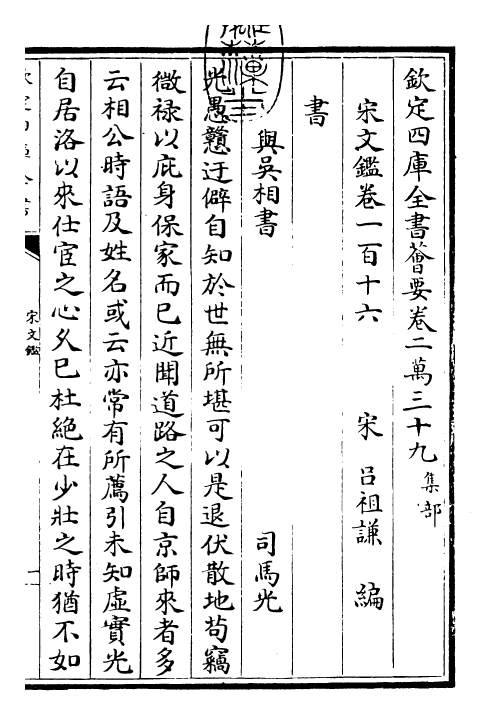 欽定四庫全書薈要卷二萬三十九 集部
宋文鑑卷一百十六
宋 呂祖謙 編
書
與吳相書 司馬光
光愚戇迂僻自知於世無所堪可以是退伏散地苟竊
微禄以庇身保家而已近聞道路之人自京師來者多
云相公時語及姓名或云亦常有所薦引未知虛實光
自居洛以來仕宦之心久已杜絶在少壯之時猶不如
宋文鑑
一